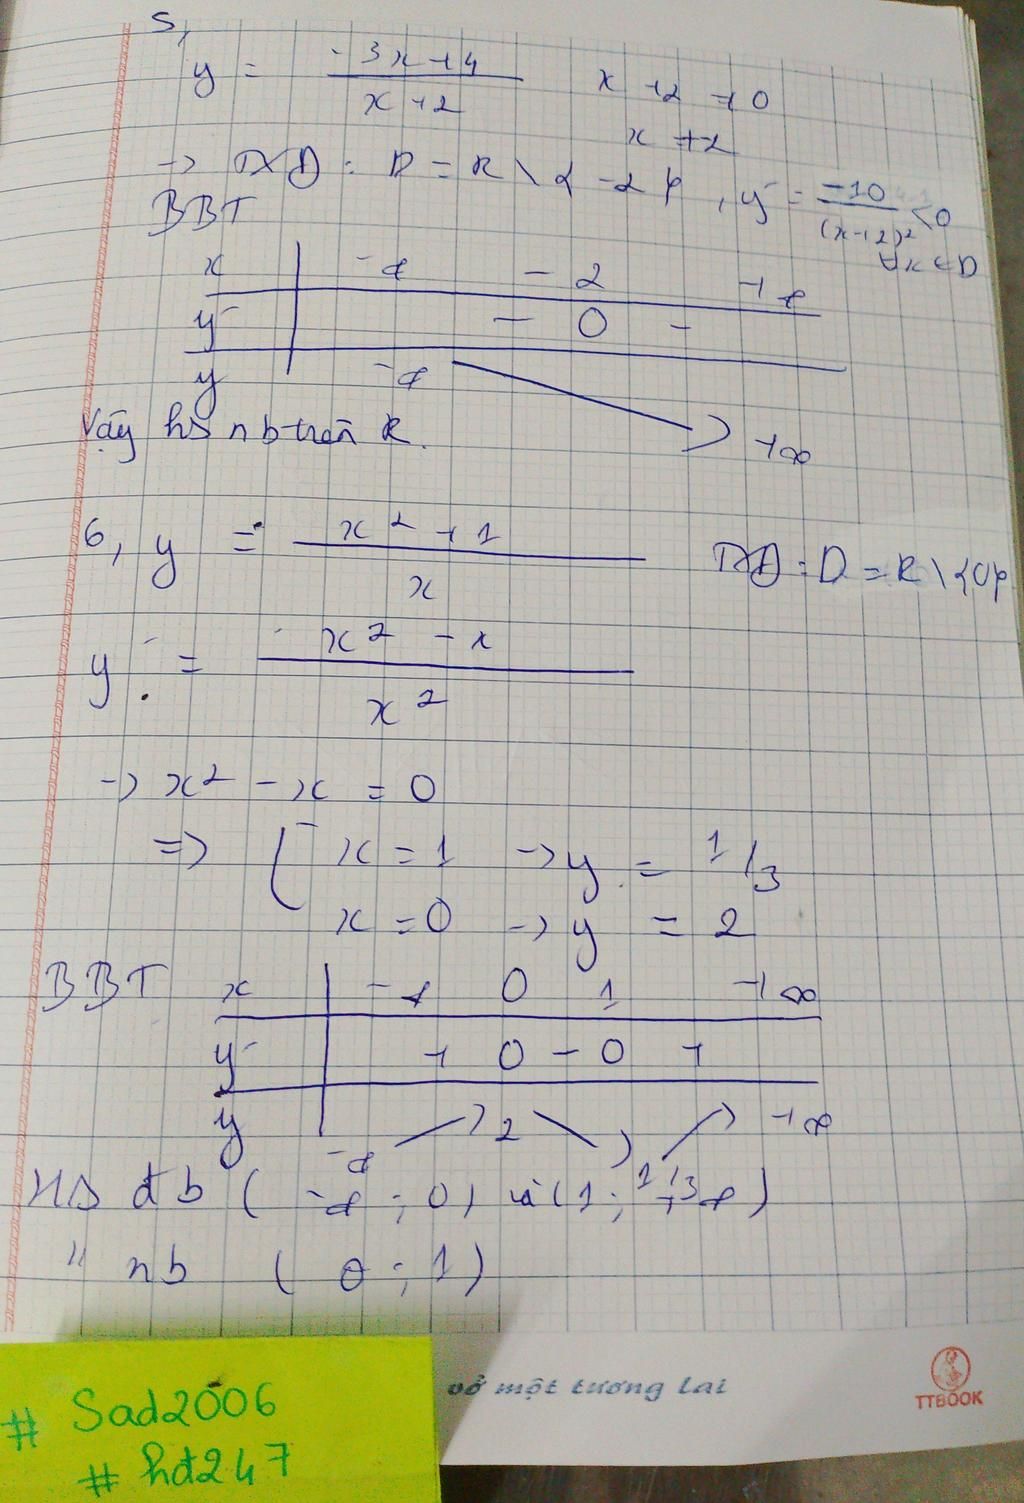 5,
y = -3x+4 / x+2     x+2 ≠ 0
x ≠ -2
-> TXD : D = R \ { -2 } , y' = -10 / (x+2)² < 0
∀x ∈ D
BBT
x | -∞ -2 +∞
y' | - 0 -
y | -∞ ↘ +∞
Vậy hs nb trên R.
6, y = x² + 1 / x     TXD : D = R \ {0}
y' = x² - x / x²
-> x² - x = 0
=> [ x = 1 -> y = 1/3
x = 0 -> y = 2
BBT x | -∞ 0 1 +∞
y' | + 0 - 0 +
y | -∞ ↗ 2 ↘ 1/3 ↗ +∞
HS đb ( -∞ ; 0 ) và ( 1 ; +∞ )
" nb ( 0 ; 1 )
vở một tương lai
TTBOOK
# Sad2006
# hđ247